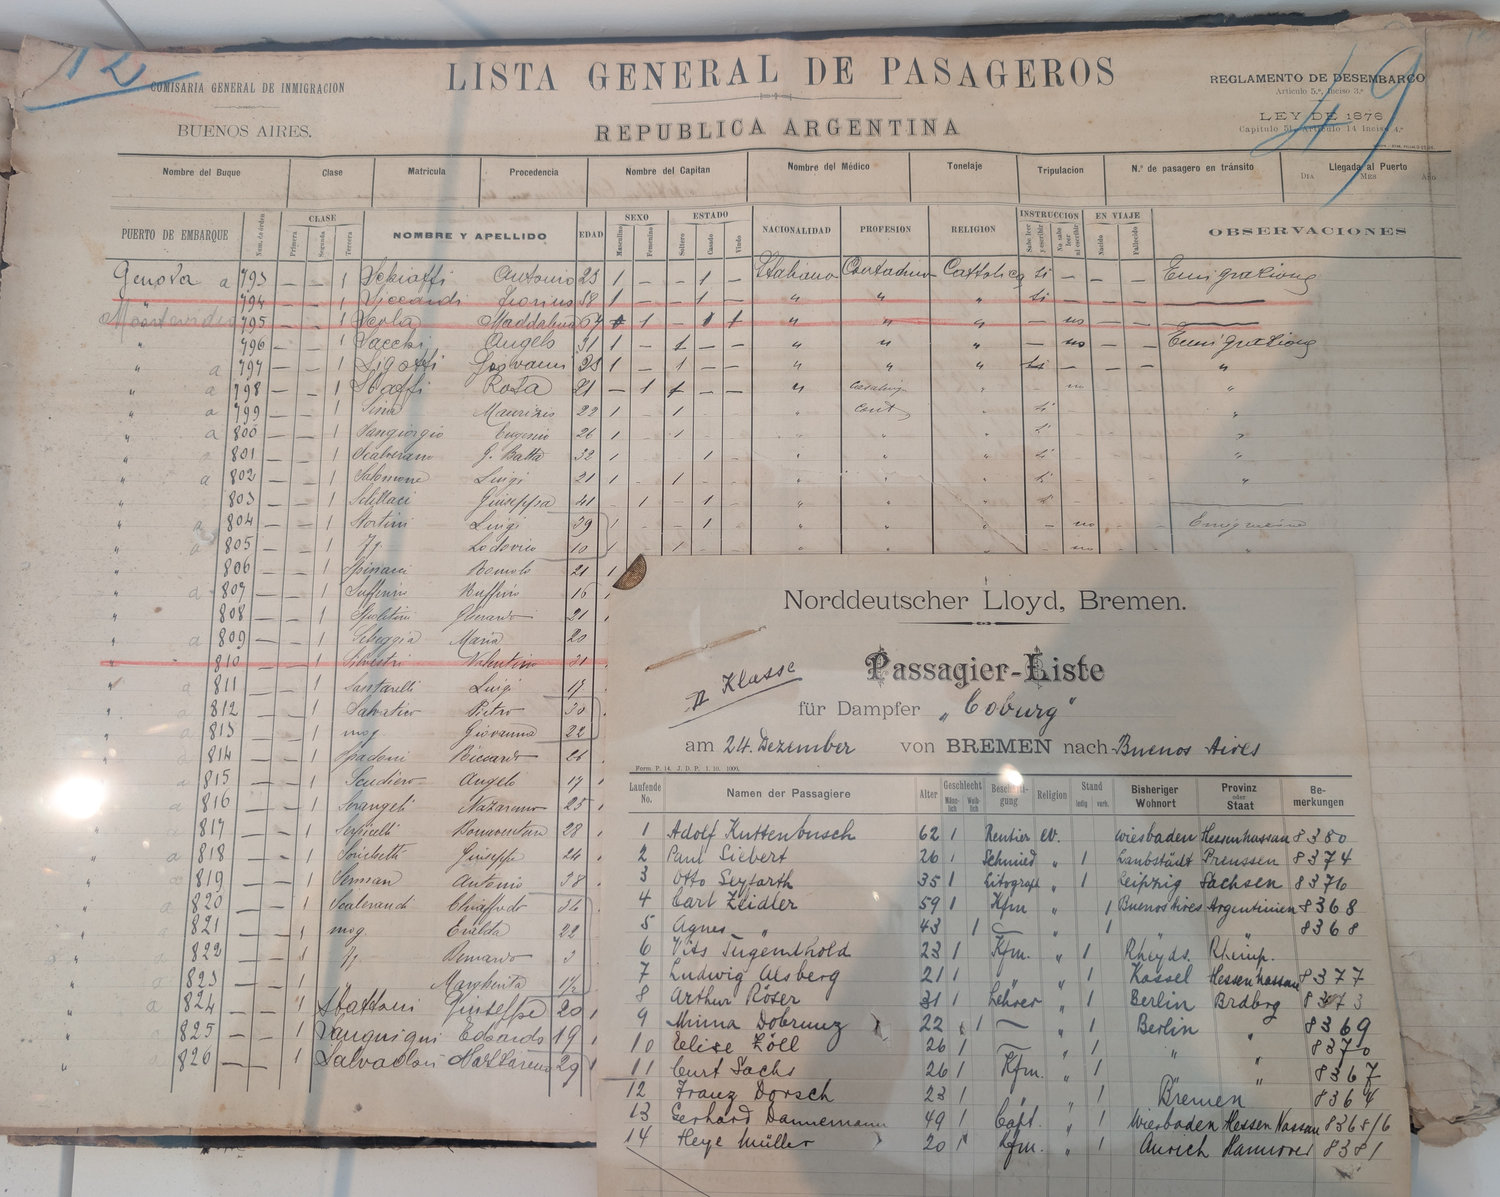 12
49
COMISARIA GENERAL DE INMIGRACION
BUENOS AIRES.
LISTA GENERAL DE PASAGEROS
REPUBLICA ARGENTINA
REGLAMENTO DE DESEMBARCO
Artículo 5.º, Inciso 3.º
LEY DE 1876
Nombre del Buque Clase Matricula Procedencia Nombre del Capitan Nombre del Médico Tonelaje Tripulacion N.º de pasagero en tránsito Llegada al Puerto
DIA MES AÑO
PUERTO DE EMBARQUE Núm. de órden CLASE Primera Segunda Tercera NOMBRE Y APELLIDO EDAD SEXO Masculino Femenino ESTADO Soltero Casado Viudo NACIONALIDAD PROFESION RELIGION INSTRUCCION Sabe leer y escribir No sabe leer ni escribir EN VIAJE Nacido Fallecido OBSERVACIONES
Genova a 793 — — 1 Schiaffi Antonio 23 1 — — 1 — Italiano Contadino Cattolica si — — —
" 794 — — 1 Riccardi 58 1 — — 1 — " " " si — — —
Montevideo 795 — — 1 Maddalena 1 — " " " — no — —
" 796 — — 1 Sacchi Angelo 31 1 — 1 — — " " " — no — —
" a 797 — — 1 Ligotti Giovanni 23 1 — 1 — — " " " "
" a 798 — — 1 Staffi Rosa 21 — 1 — — " casalinga " no "
" a 799 — — 1 Maurizio 22 1 — 1 " cont " si "
" a 800 — — 1 Sangiorgio Eugenio 26 1 — 1 " " " si "
" 801 — — 1 Scalverano G. Batta 32 1 1 " " " si "
" a 802 — — 1 Salomone Luigi 21 1 — 1 " " " si "
" 803 — — 1 Schillaci Giuseppa 41 1 1 " " " si
" a 804 — — 1 Stortini Luigi 39 1 1 " " " — no
" a 805 — — 1 Lodovico 10 1 " " " no
" 806 — — 1 Spinaci Romolo 21 1
" a 807 — — 1 Ruffino 16
" 808 — — 1 Spoletini Gherardo 21
" a 809 — — 1 Scheggia Maria 20
" 810 — — 1 Silvestri Valentino 31
" a 811 — — 1 Santarelli Luigi 17
" a 812 — — 1 Salvatico Pietro 30
" a 813 — — 1 mog Giovanna 22
" a 814 — — 1 Spadoni Riccardo 26
" a 815 — — 1 Scudiero Angelo 17
" a 816 — — 1 Serangeli Nazareno 25
" 817 — — 1 28
" a 818 — — 1 Sorichetti Giuseppe 24
" 819 — — 1 Serman Antonio 38
" a 820 — — 1 Chiaffredo
" a 821 — — 1 mog. 22
" 822 — — 1 Bernardo 3
" 823 — — 1 Margherita 1½
" a 824 — — 1 Stattoni Giuseppe 20
" 825 — — 1 Sanguigni Edoardo 19
" 826 — — 1 Salvadori Nazzareno 29
Norddeutscher Lloyd, Bremen.
II Klasse
Passagier-Liste
für Dampfer „Coburg"
am 24. Dezember von BREMEN nach Buenos Aires
Form. P. 14. J. D. P. 1. 10. 1909.
Laufende No. Namen der Passagiere Alter Geschlecht Männlich Weiblich Beschäftigung Religion Stand ledig verh. Bisheriger Wohnort Provinz oder Staat Bemerkungen
1 Adolf Kuttenbusch 62 1 Rentier ev. Wiesbaden Hessennassau 8380
2 Paul Siebert 26 1 Schmied " 1 Preussen 8374
3 Otto Seyfarth 35 1 Litograph " 1 Leipzig Sachsen 8376
4 Carl Zeidler 59 1 Kfm " 1 Buenos Aires Argentinien 8368
5 Agnes " 43 1 — " 1 " " 8368
6 Tugendhold 23 1 Kfm. " 1 Rheydt
7 Ludwig Alsberg 21 1 " " 1 Kassel Hessennassau 8377
8 Arthur Röser 31 1 Lehrer " 1 Berlin Brdbrg 8373
9 Minna Dobrunz 22 1 — " 1 Berlin " 8369
10 Elise Zöll 26 1 — " 1 " " 8370
11 Curt Sachs 26 1 Kfm. " 1 " " 8367
12 Franz Dorsch 23 1 " " 1 Bremen 8364
13 Gerhard Dannemann 49 1 Capt. " 1 Wiesbaden Hessen Nassau 8365/6
14 Heye Müller 20 1 Kfm. " 1 Aurich Hannover 8381